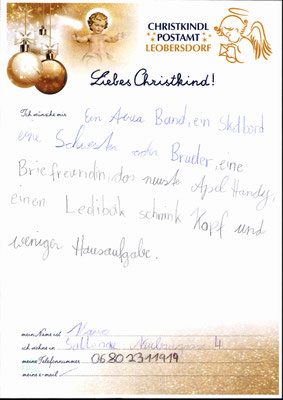 CHRISTKINDL
POSTAMT
LEOBERSDORF
Liebes Christkind!
Ich wünsche mir Ein Aerea Band, en Skatbord
eine Schwester oder Bruder, eine
Briefreundin, das neuste Apel Handy,
einen Ledibak schmink Kopf und
weniger Hausaufgabe.
mein Name ist
ich wohne in 4
meine Telefonnummer 0680 2311919
meine e-mail